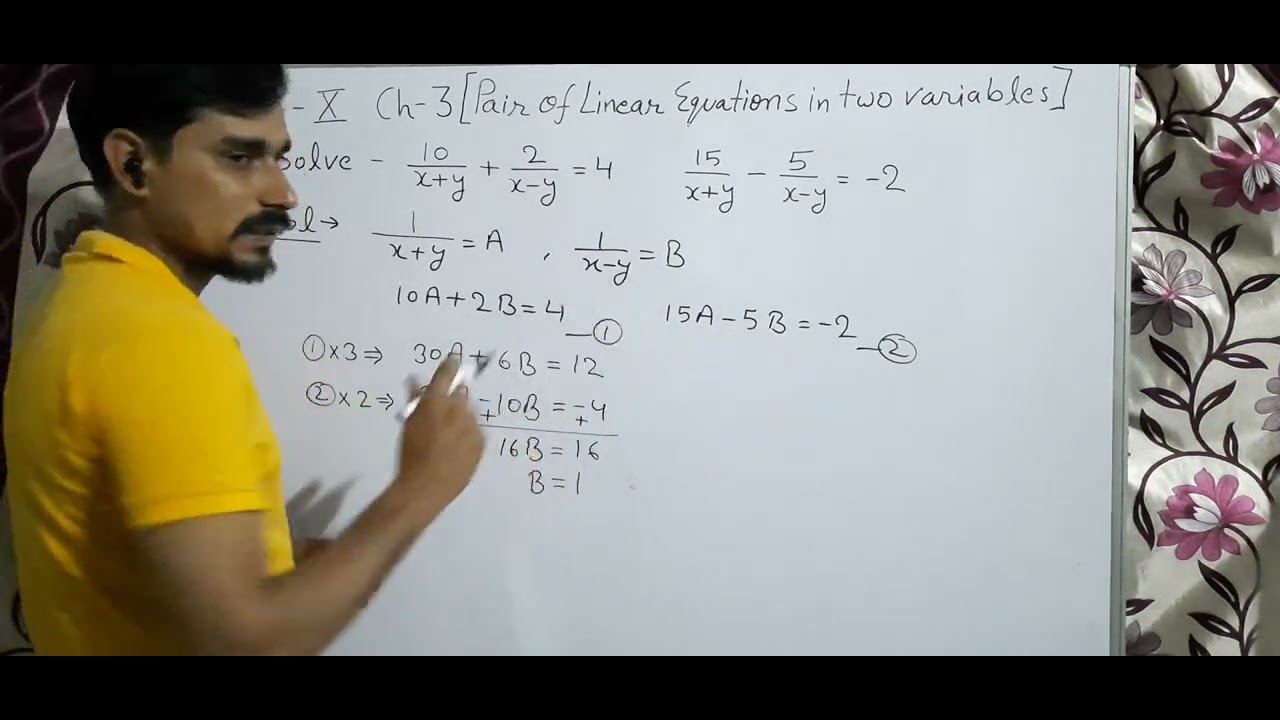 - X Ch-3 [Pair of Linear Equations in two variables]
Solve - 10/(x+y) + 2/(x-y) = 4 15/(x+y) - 5/(x-y) = -2
Sol → 1/(x+y) = A , 1/(x-y) = B
10A + 2B = 4 —① 15A - 5B = -2 —②
①×3 ⇒ 30A + 6B = 12
②×2 ⇒ -10B = -4
+ +
16B = 16
B = 1